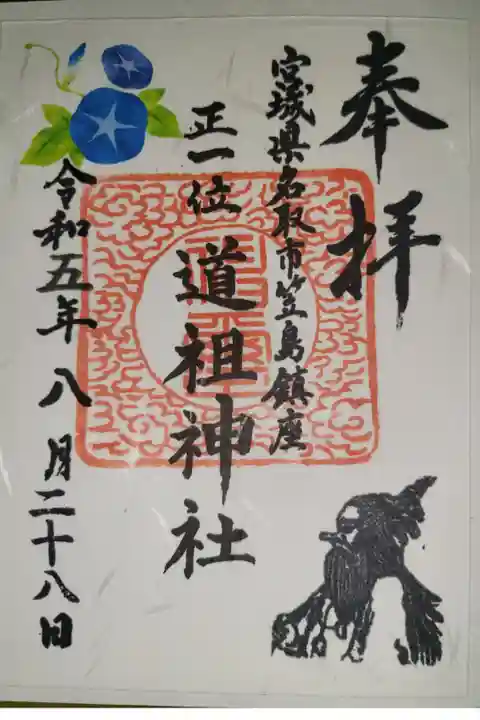 奉拝
宮城県名取市笠島鎮座
正一位
道祖神社
令和五年八月二十八日